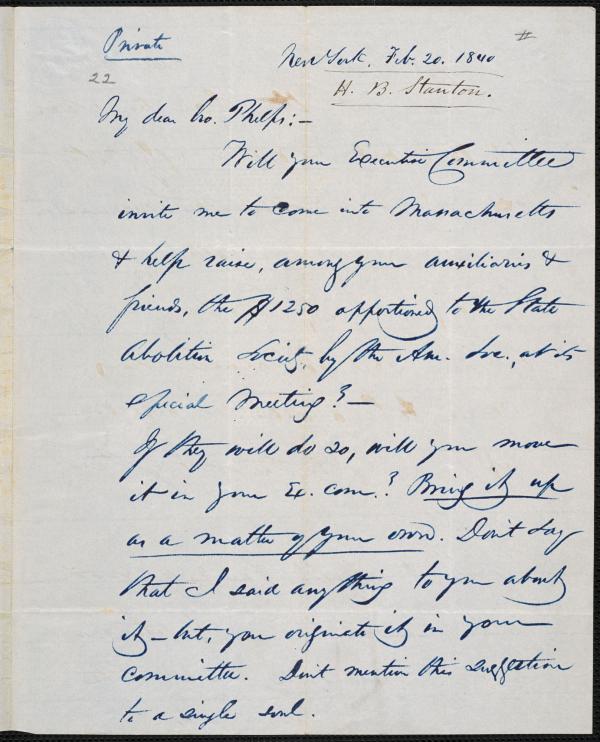 Private
22
#
New York, Feb. 20. 1840
H. B. Stanton.
My dear bro. Phelps:—
Will your Executive Committee
invite me to come into Massachusetts
& help raise, among your auxiliaries &
friends, the $1250 apportioned to the State
Abolition Society, by the Am. Soc., at its
special meeting?—
If they will do so, will you move
it in your Ex. com.? Bring it up
as a matter of your own. Don't say
that I said anything to you about
it—but, you originate it in your
committee. Don't mention this suggestion
to a single soul.